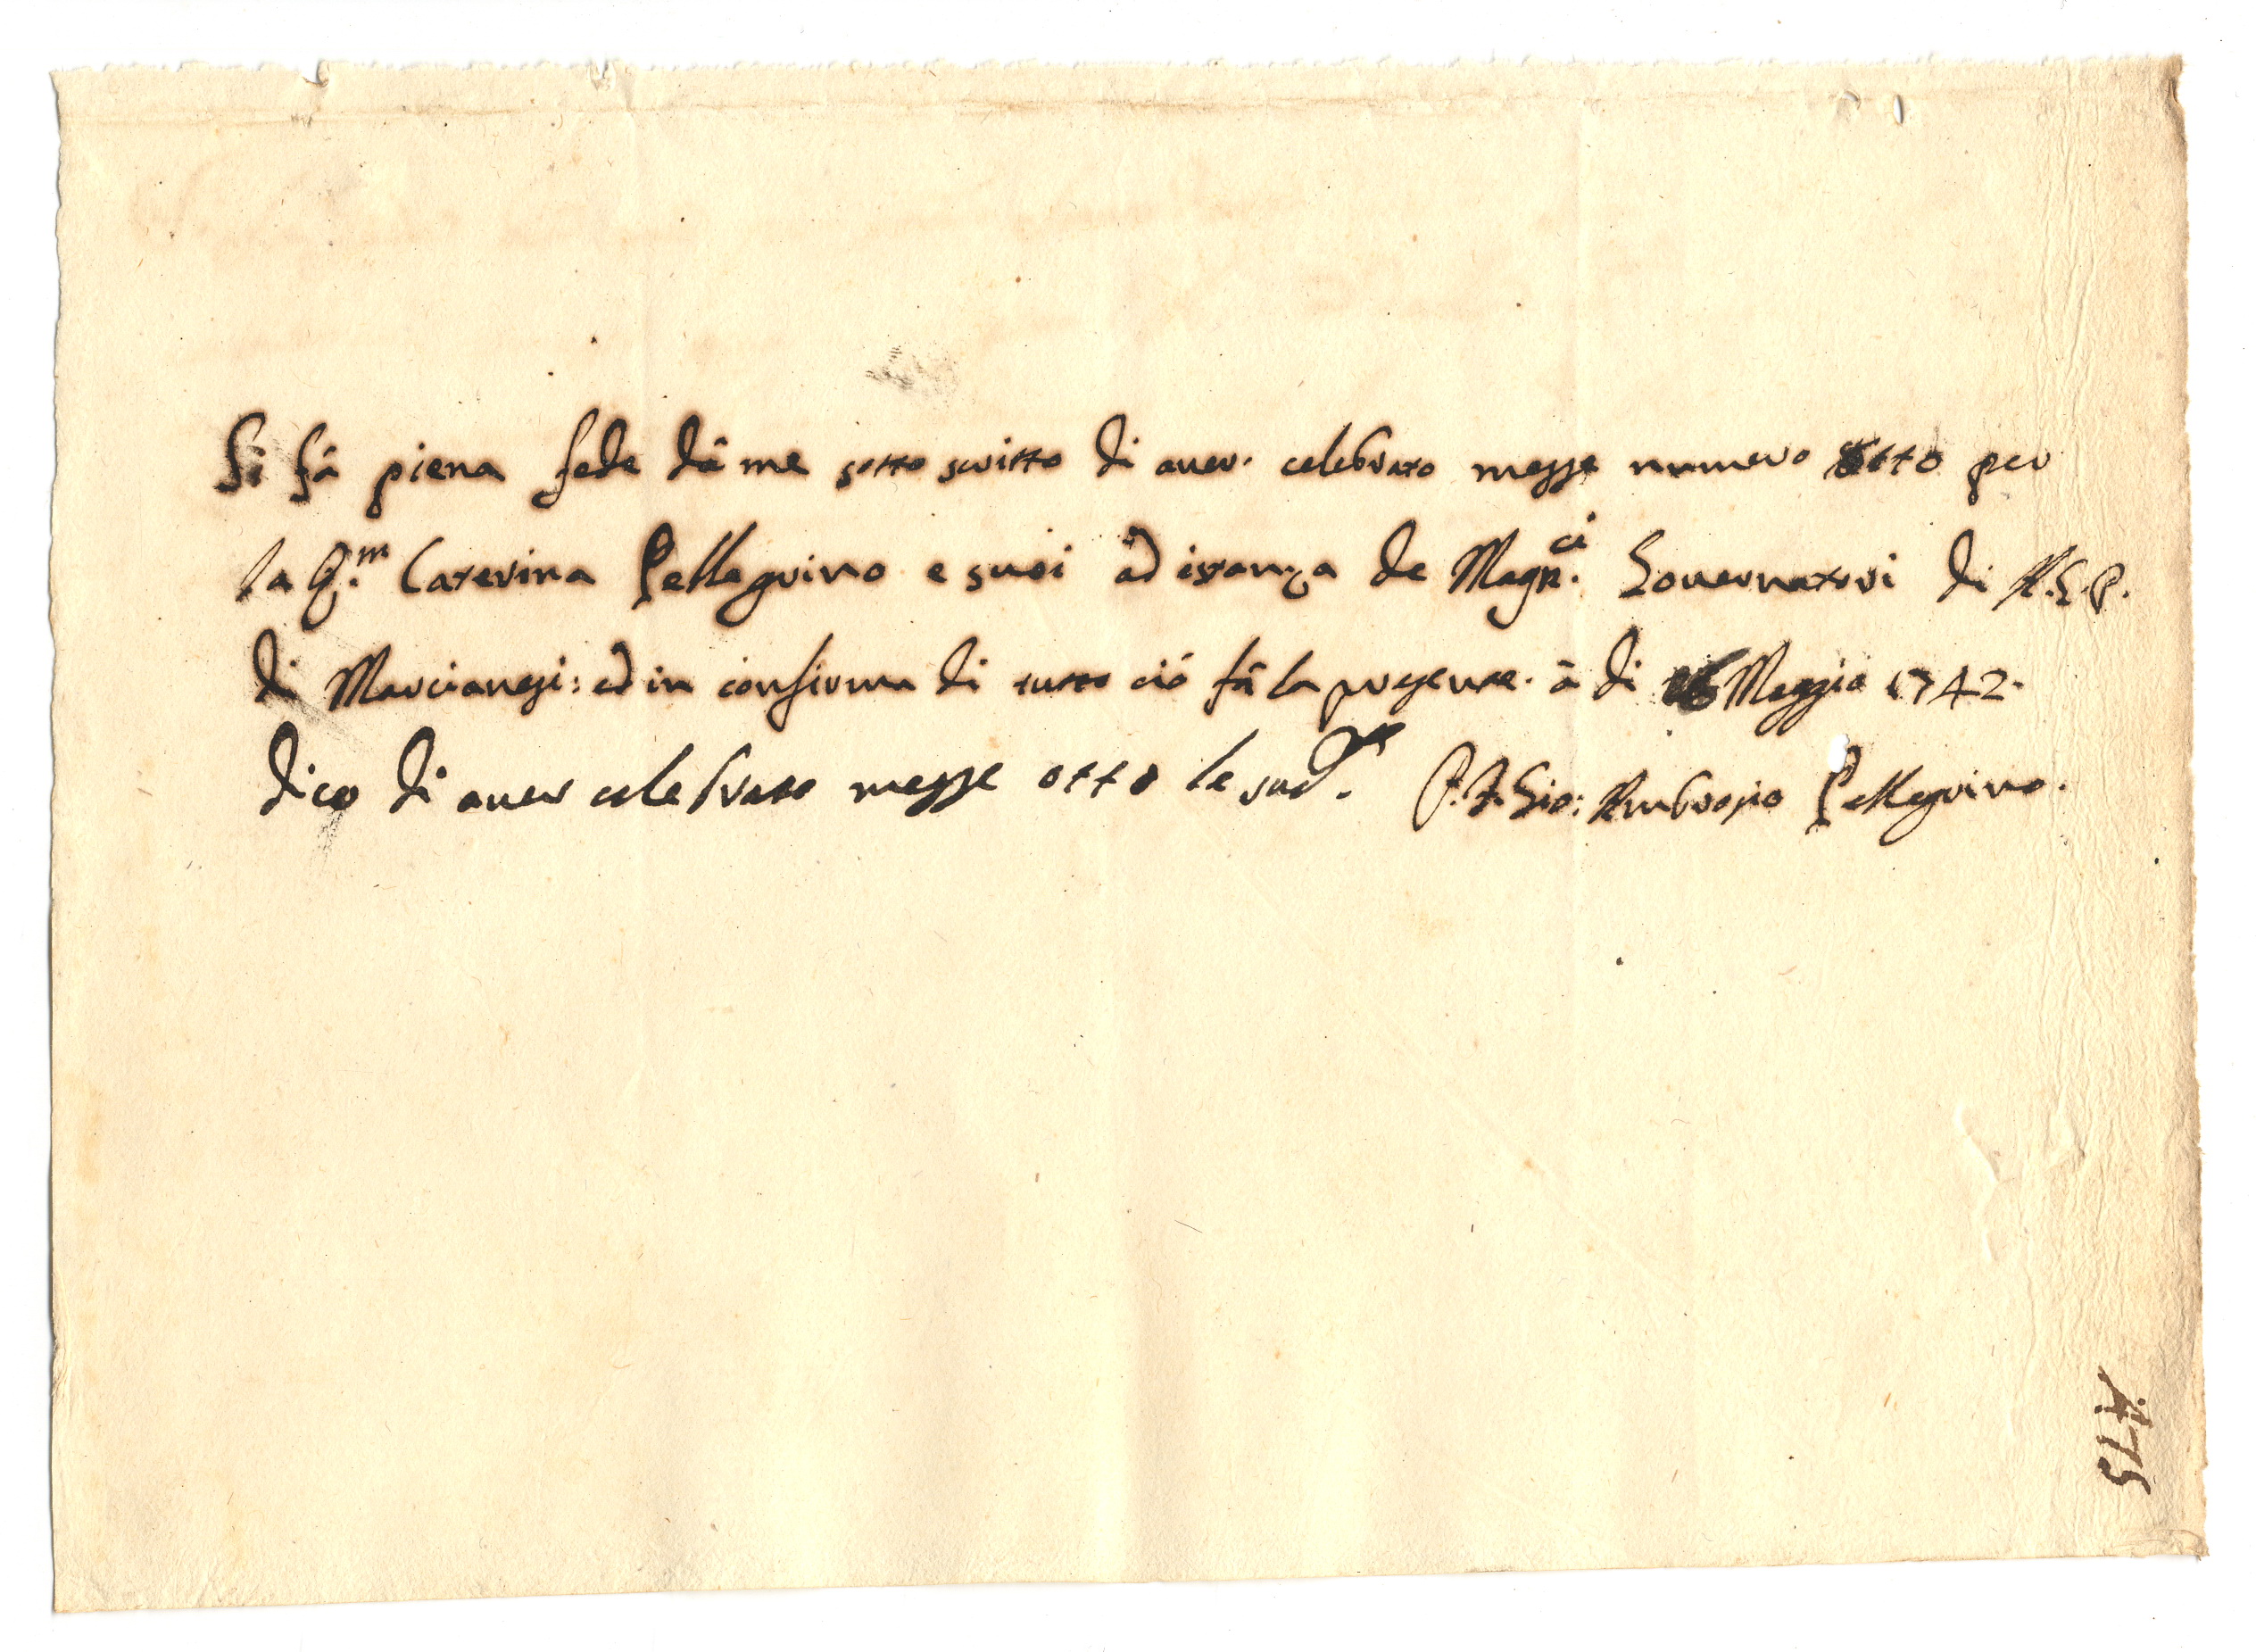 Si fà piena fede dà me sotto scritto di aver celebrato messe numero otto per
la q.m Caterina Pellegrino e suoi ad istanza de Magn.ci Governatori di A.G.P.
di Marcianesi: ed in confirma di tutto ciò fà la presente. à di 16 Maggio 1742.
dico di aver celebrato messe otto le sud.e P. F. Gio: Ambrosio Pellegrino.
A775